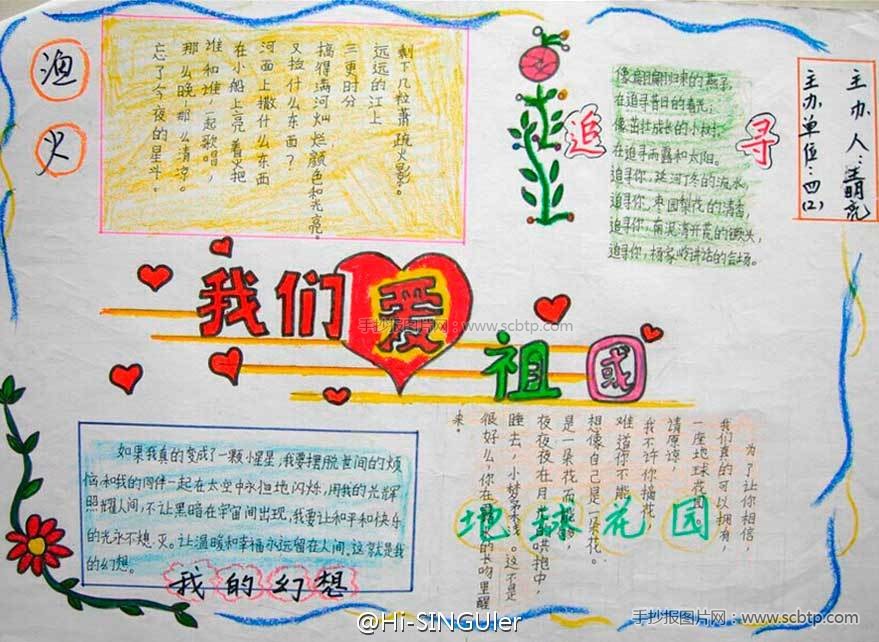 渔火
剩下几粒萧疏火影。
远远的江上
三更时分
搞得满河灿烂颜色和光亮。
又捡什么东西？
河面上撒什么东西
在小船上亮着火把
谁和谁一起歌唱，
那么晚，那么清凉。
忘了今夜的星斗。
追寻
像扇扇归来的燕子，
在追寻昔日的春光；
像茁壮成长的小树，
在追寻雨露和太阳。
追寻你，延河叮冬的流水，
追寻你，枣园梨花的清香，
追寻你，南泥湾开荒的锄头，
追寻你，杨家岭讲话的会场。
主办人：
主办单位：四(2)
我们爱祖国
手抄报图片网：www.scbtp.com
如果我真的变成了一颗小星星，我要摆脱世间的烦
恼和我的同伴一起在太空中永恒地闪烁，用我的光辉
照耀人间，不让黑暗在宇宙间出现，我要让和平和快乐
的光永不熄灭。让温暖和幸福永远留在人间。这就是我
的幻想。
我的幻想
地球花园
为了让你相信，
我们真的可以拥有，
一座地球花园，
请原谅，
我不许你摘花，
难道你不能
想像自己是一朵花。
是一朵花而
夜夜夜在月光的哄抱中，
睡去，小
这不是
很好么，你在
的长吻里醒
来。
@Hi-SINGUler
手抄报图片网：www.scbtp.com